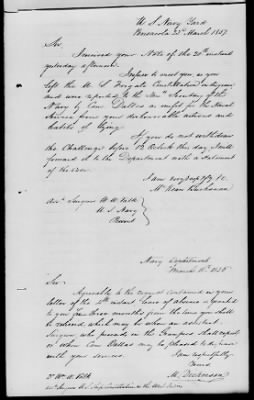 U S Navy Yard
Pensacola 22d March 1837
Sir,
I received your Note of the 20th instant
yesterday afternoon.
I refuse to meet you, as you
left the U. S. Frigate Constellation in disgrace
and was reported to the Secretary of the
Navy by Com. Dallas as unfit for the Naval
Service from your dishonorable actions and
habits of lying.
If you do not withdraw
the Challenge before 12 Oclock this day I will
forward it to the Department with a statement
of the case.
I am respectfly &c.
McKean Buchanan
U S Navy
Present
Navy Department
March 11th 1836
Sir,
Agreeably to the request contained in your
letter of the instant leave of absence is granted
to you from three months from the time you shall
be relieved, which may be when an assistant
Surgeon who proceeds in the Grampus shall report
or when Com Dallas may be pleased to dispense
with your services.
I am respectfully
Yours
M. Dickerson
Constellation West Indies